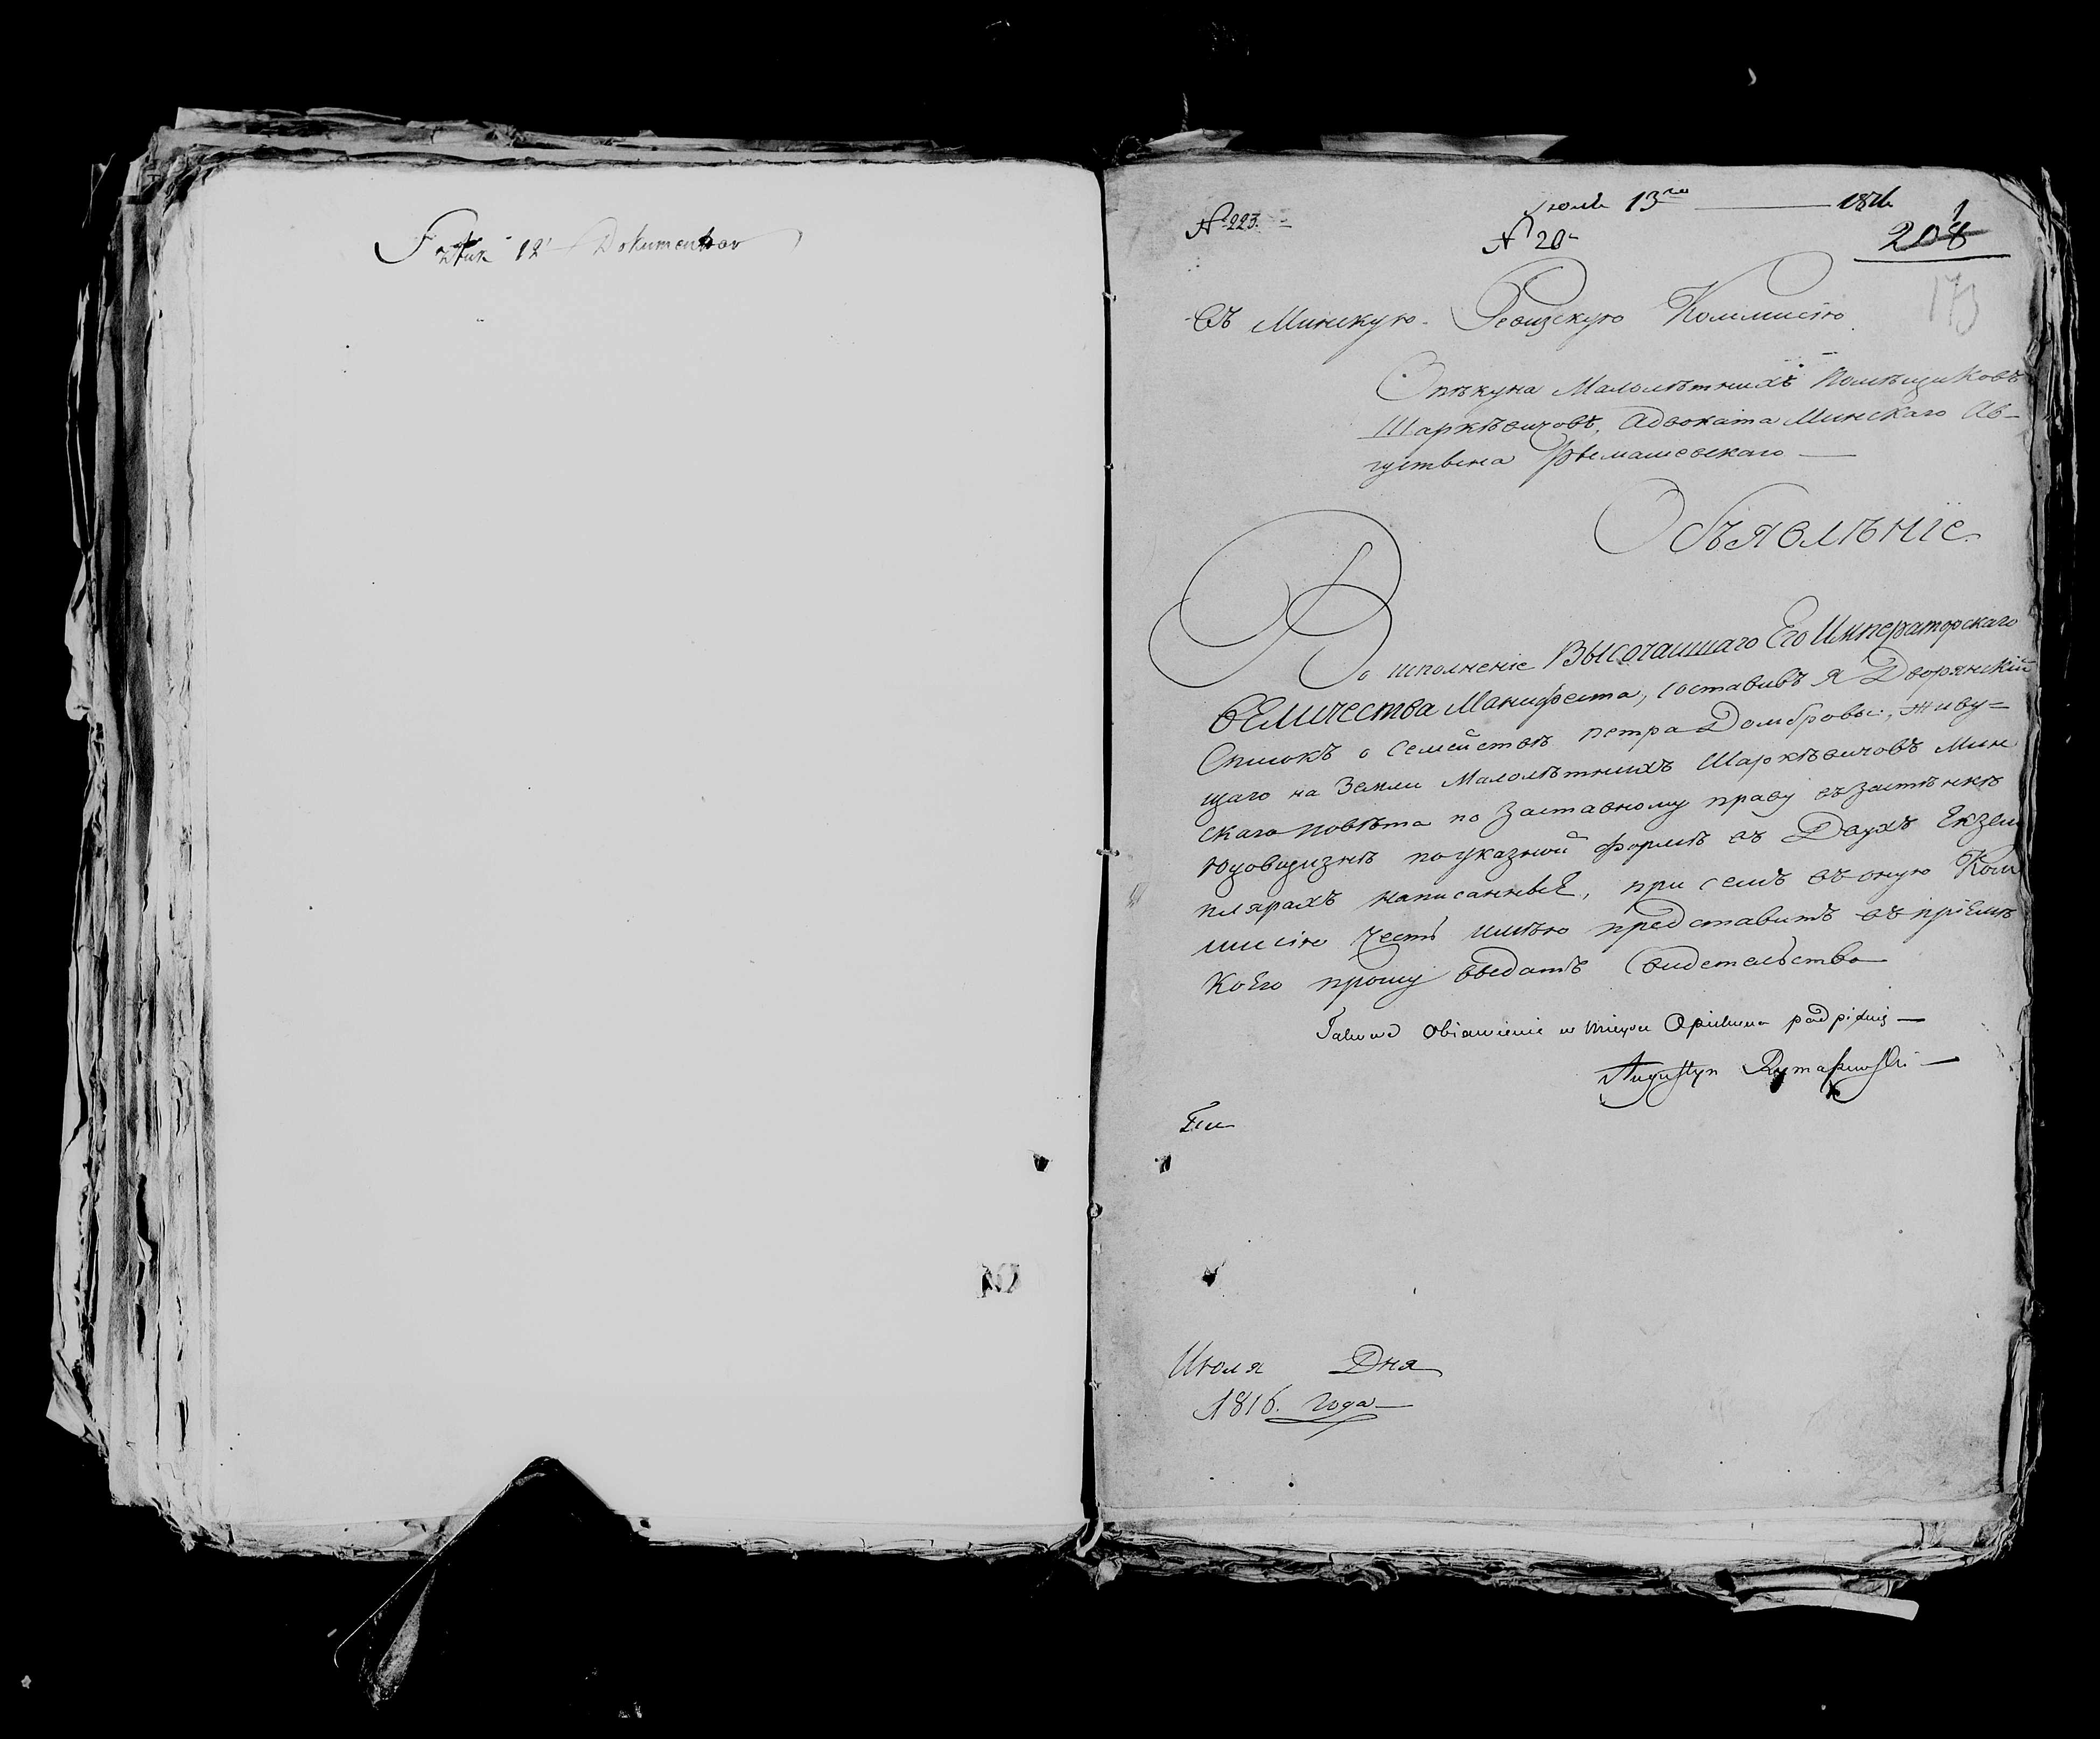 Sztuk 12 Dokumentow
№ 223.
Июля 13го 1816
№ 20
208
1
173
Въ Минскую Ревизскую Коммисію
Опѣкуна Малолѣтнихъ Помѣщиковъ
Шаркѣвичовъ, Адвоката Минскаго Ав-
густына Рымашевскаго
Объявлѣніе
Во исполненіе Высочаишаго Его Императорскаго
Величества Манифеста, составивъ я Дворянскій
Списокъ о Семействѣ петра Домбровы, живу=
щаго на Земли Малолѣтнихъ Шаркѣвичовъ Мин
скаго повѣта по Заставному праву въ застѣнкѣ
поуказной формѣ въ Двухъ Екзем
плярахъ написанные, при семъ въ оную Ком
мисію честь имѣю представить въ пріемѣ
коего прошу выдать Свидетельство
Takowe Obiawienie w mieyscu Opiekuna podpisuię
Augustyn Rymaszewski
Июля Дня
1816. Года